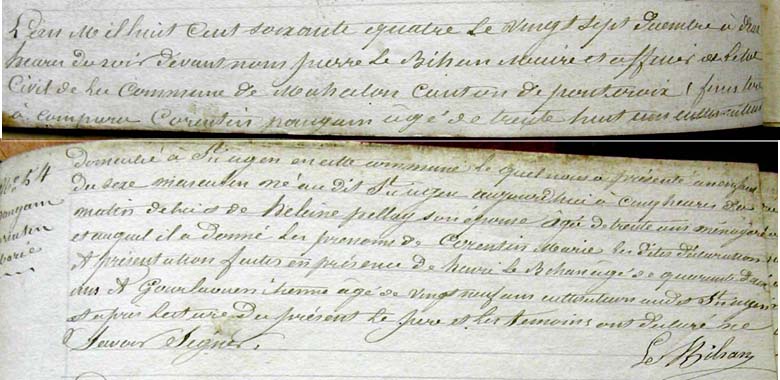 L'an Mil huit cent soixante quatre le vingt sept Decembre à deux
heures du soir devant nous pierre Le Bihan Maire et officier de l'etat
Civil de la Commune de Mahalon Canton de pontcroix, finistere
à comparu Corentin pangam âgé de trente huit ans cultivateur
N° 54
pangam
Corentin
Marie
domicilié à St ugen en cette commune le quel nous a présenté un enfant
du sexe masculin né au dit St ugen aujourdhui à cinq heures du
matin de lui et de helene pellay son epouse âgé de trente ans menagère
et auquel il a donné les prenoms de Corentin Marie les dites déclaration
et présentation faites en présence de herve Le Bihan âgé de quarante deux
ans et Gourlaouen etienne agé de vingt neuf ans cultivateurs au dit St ugen
et apres lecture du présent le pere et les temoins ont declaré ne
Savoir Signer.
Le Bihan